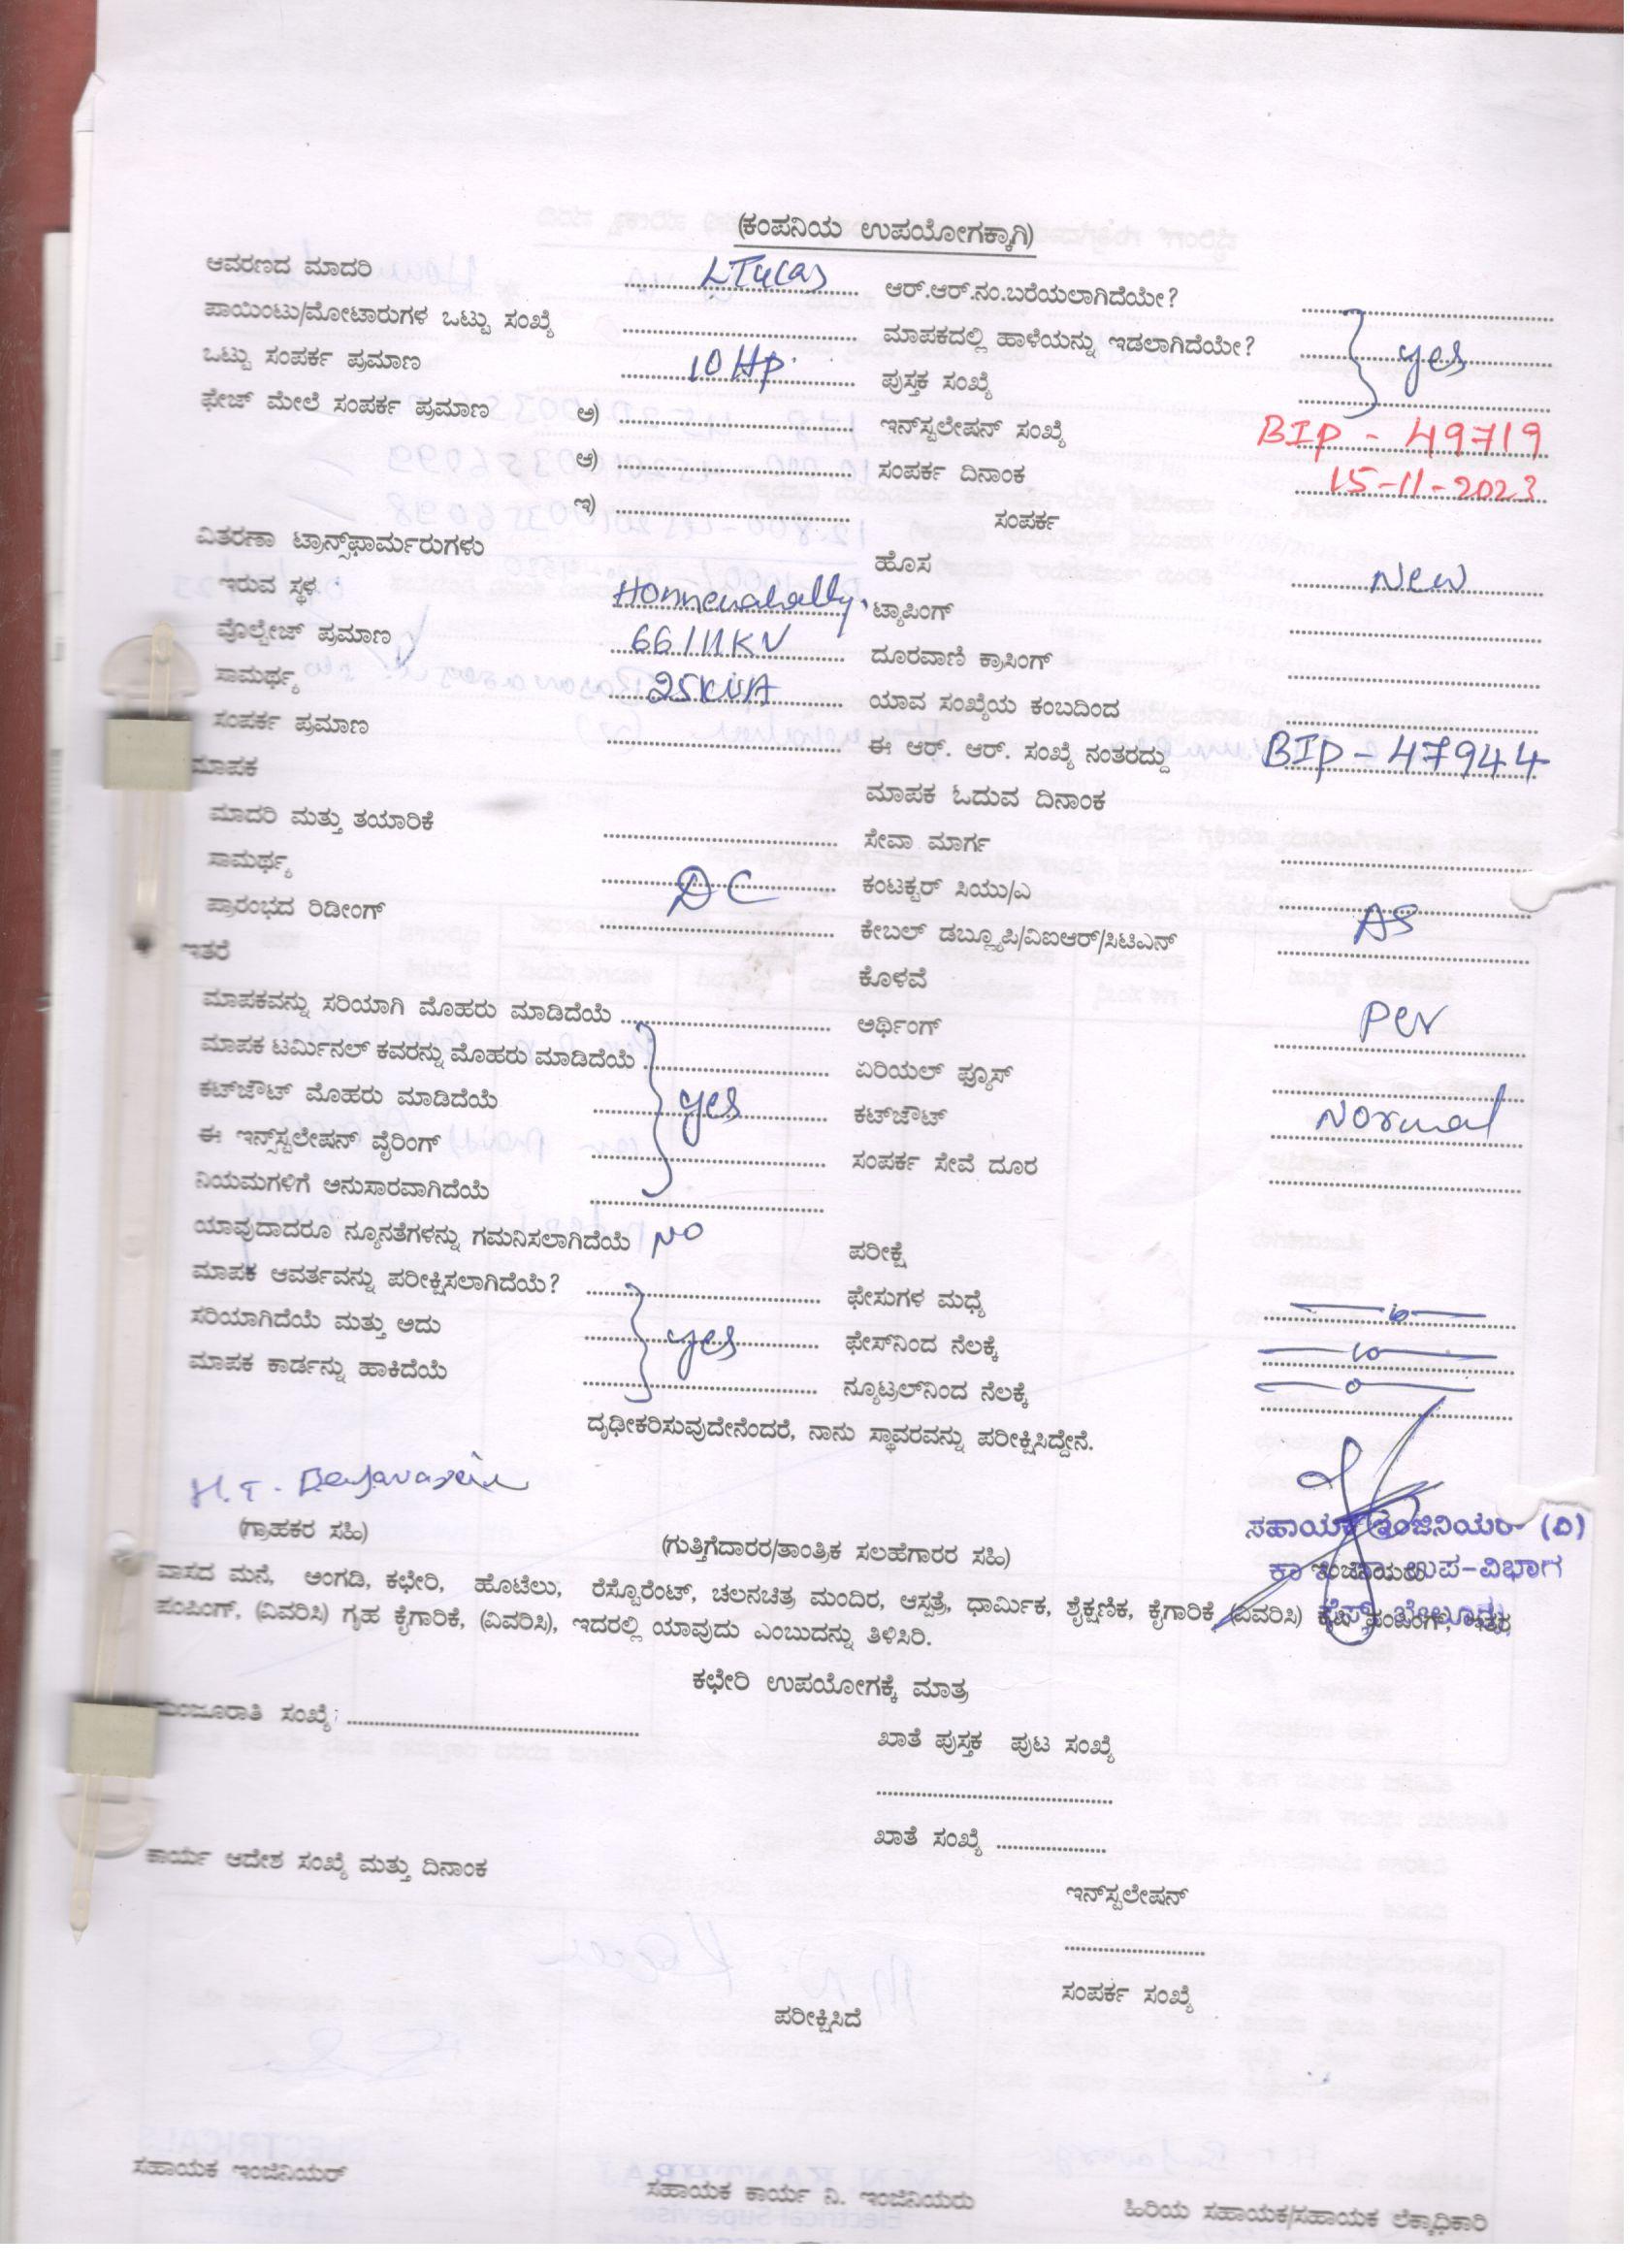 (ಕಂಪನಿಯ ಉಪಯೋಗಕ್ಕಾಗಿ)
ಆವರಣದ ಮಾದರಿ ........ ಆರ್.ಆರ್.ನಂ.ಬರೆಯಲಾಗಿದೆಯೇ? ........
ಪಾಯಿಂಟು/ಮೋಟಾರುಗಳ ಒಟ್ಟು ಸಂಖ್ಯೆ ........ ಮಾಪಕದಲ್ಲಿ ಹಾಳೆಯನ್ನು ಇಡಲಾಗಿದೆಯೇ? yes
ಒಟ್ಟು ಸಂಪರ್ಕ ಪ್ರಮಾಣ 10 HP. ಪುಸ್ತಕ ಸಂಖ್ಯೆ ........
ಫೇಜ್ ಮೇಲೆ ಸಂಪರ್ಕ ಪ್ರಮಾಣ ಅ) ........ ಇನ್‌ಸ್ಟಲೇಷನ್ ಸಂಖ್ಯೆ BIP - 49719
ಆ) ........ ಸಂಪರ್ಕ ದಿನಾಂಕ 15-11-2023
ಇ) ........ ಸಂಪರ್ಕ
ವಿತರಣಾ ಟ್ರಾನ್ಸ್‌ಫಾರ್ಮರುಗಳು ಹೊಸ New
ಇರುವ ಸ್ಥಳ Honnenahally, ಟ್ಯಾಪಿಂಗ್ ........
ವೊಲ್ಟೇಜ್ ಪ್ರಮಾಣ 66/11KV ದೂರವಾಣಿ ಕ್ರಾಸಿಂಗ್ ........
ಸಾಮರ್ಥ್ಯ 25KVA ಯಾವ ಸಂಖ್ಯೆಯ ಕಂಬದಿಂದ ........
ಸಂಪರ್ಕ ಪ್ರಮಾಣ ........ ಈ ಆರ್. ಆರ್. ಸಂಖ್ಯೆ ನಂತರದ್ದು BIP - 47944
ಮಾಪಕ ಮಾಪಕ ಓದುವ ದಿನಾಂಕ
ಮಾದರಿ ಮತ್ತು ತಯಾರಿಕೆ ........ ಸೇವಾ ಮಾರ್ಗ ........
ಸಾಮರ್ಥ್ಯ DC ಕಂಟಕ್ಟರ್ ಸಿಯು/ಎ ........
ಪ್ರಾರಂಭದ ರಿಡೀಂಗ್ ........ ಕೇಬಲ್ ಡಬ್ಲ್ಯೂಪಿ/ವಿಐಆರ್/ಸಿಟಿಎನ್ AS
ಇತರೆ ಕೊಳವೆ
ಮಾಪಕವನ್ನು ಸರಿಯಾಗಿ ಮೊಹರು ಮಾಡಿದೆಯೆ ........ ಅರ್ಥಿಂಗ್ Per
ಮಾಪಕ ಟರ್ಮಿನಲ್ ಕವರನ್ನು ಮೊಹರು ಮಾಡಿದೆಯೆ ........ ಏರಿಯಲ್ ಫ್ಯೂಸ್ ........
ಕಟ್‌ಜೌಟ್ ಮೊಹರು ಮಾಡಿದೆಯೆ yes ಕಟ್‌ಜೌಟ್ Normal
ಈ ಇನ್‌ಸ್ಟಲೇಷನ್ ವೈರಿಂಗ್ ........ ಸಂಪರ್ಕ ಸೇವೆ ದೂರ ........
ನಿಯಮಗಳಿಗೆ ಅನುಸಾರವಾಗಿದೆಯೆ ........
ಯಾವುದಾದರೂ ನ್ಯೂನತೆಗಳನ್ನು ಗಮನಿಸಲಾಗಿದೆಯೆ NO ಪರೀಕ್ಷೆ
ಮಾಪಕ ಆವರ್ತವನ್ನು ಪರೀಕ್ಷಿಸಲಾಗಿದೆಯೆ? ........ ಫೇಸುಗಳ ಮಧ್ಯೆ ........
ಸರಿಯಾಗಿದೆಯೆ ಮತ್ತು ಅದು yes ಫೇಸ್‌ನಿಂದ ನೆಲಕ್ಕೆ ........
ಮಾಪಕ ಕಾರ್ಡನ್ನು ಹಾಕಿದೆಯೆ ........ ನ್ಯೂಟ್ರಲ್‌ನಿಂದ ನೆಲಕ್ಕೆ ........
ದೃಢೀಕರಿಸುವುದೇನೆಂದರೆ, ನಾನು ಸ್ಥಾವರವನ್ನು ಪರೀಕ್ಷಿಸಿದ್ದೇನೆ.
H.T.
ಸಹಾಯಕ ಇಂಜಿನಿಯರ್ (ವಿ)
(ಗ್ರಾಹಕರ ಸಹಿ) (ಗುತ್ತಿಗೆದಾರರ/ತಾಂತ್ರಿಕ ಸಲಹೆಗಾರರ ಸಹಿ) ಉಪ-ವಿಭಾಗ
ವಾಸದ ಮನೆ, ಅಂಗಡಿ, ಕಛೇರಿ, ಹೊಟೆಲು, ರೆಸ್ಟೊರೆಂಟ್, ಚಲನಚಿತ್ರ ಮಂದಿರ, ಆಸ್ಪತ್ರೆ, ಧಾರ್ಮಿಕ, ಶೈಕ್ಷಣಿಕ, ಕೈಗಾರಿಕೆ (ವಿವರಿಸಿ)
ಪಂಪಿಂಗ್, (ವಿವರಿಸಿ) ಗೃಹ ಕೈಗಾರಿಕೆ, (ವಿವರಿಸಿ), ಇದರಲ್ಲಿ ಯಾವುದು ಎಂಬುದನ್ನು ತಿಳಿಸಿರಿ.
ಕಛೇರಿ ಉಪಯೋಗಕ್ಕೆ ಮಾತ್ರ
ಮಂಜೂರಾತಿ ಸಂಖ್ಯೆ: ........
ಖಾತೆ ಪುಸ್ತಕ ಪುಟ ಸಂಖ್ಯೆ
........
ಖಾತೆ ಸಂಖ್ಯೆ ........
ಕಾರ್ಯ ಆದೇಶ ಸಂಖ್ಯೆ ಮತ್ತು ದಿನಾಂಕ
ಇನ್‌ಸ್ಟಲೇಷನ್
........
ಸಂಪರ್ಕ ಸಂಖ್ಯೆ
ಪರೀಕ್ಷಿಸಿದೆ
ಸಹಾಯಕ ಇಂಜಿನಿಯರ್ ಸಹಾಯಕ ಕಾರ್ಯ ನಿ. ಇಂಜಿನಿಯರು ಹಿರಿಯ ಸಹಾಯಕ/ಸಹಾಯಕ ಲೆಕ್ಕಾಧಿಕಾರಿ